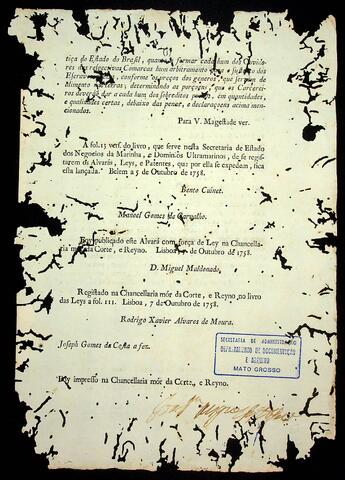 tiça do Estado do Brasil, formar cada hum dos Ouvido-
res das respectivas Comarcas hum arbitramento sustento dos
Escravos, conforme os preços dos generos, que servem de
mento nas terras; determinando as porçoens, que os Carcerei-
ros deveráõ dar a cada hum dos sobreditos quantidades,
e qualidades certas, debaixo das penas, e declaraçoens acima men-
cionadas.
Para V. Magestade ver.
A fol. 13 vers. do livro, que serve nesta Secretaria de Estado
dos Negocios da Marinha, e Dominios Ultramarinos, de se regi-
starem os Alvarás, Leys, e Patentes, que por ella se expedem, fica
esta lançada. Belem a 5 de Outubro de 1758.
Bento Cuinet.
Manoel Gomes de Carvalho.
Foy publicado este Alvará com força de Ley na Chancella-
ria mór da Corte, e Reyno. Lisboa, de Outubro de 1758.
D. Miguel Maldonado.
Registado na Chancellaria mór da Corte, e Reyno, no livro
das Leys a fol. 111. Lisboa, 7 de Outubro de 1758.
Rodrigo Xavier Alvares de Moura.
Joseph Gomes da Costa a fez.
Foy impresso na Chancellaria mór da Corte, e Reyno.
SECRETARIA DE ADMINISTRAÇÃO
DEPARTAMENTO DE DOCUMENTAÇÃO
E ARQUIVO
MATO GROSSO